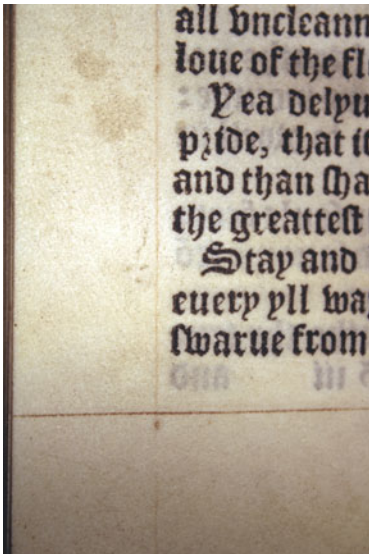 all vncleann
loue of the fl
Yea delyu
pride, that i
and than ſha
the greatteſt
Stay and
euery yll wa
ſwarue from